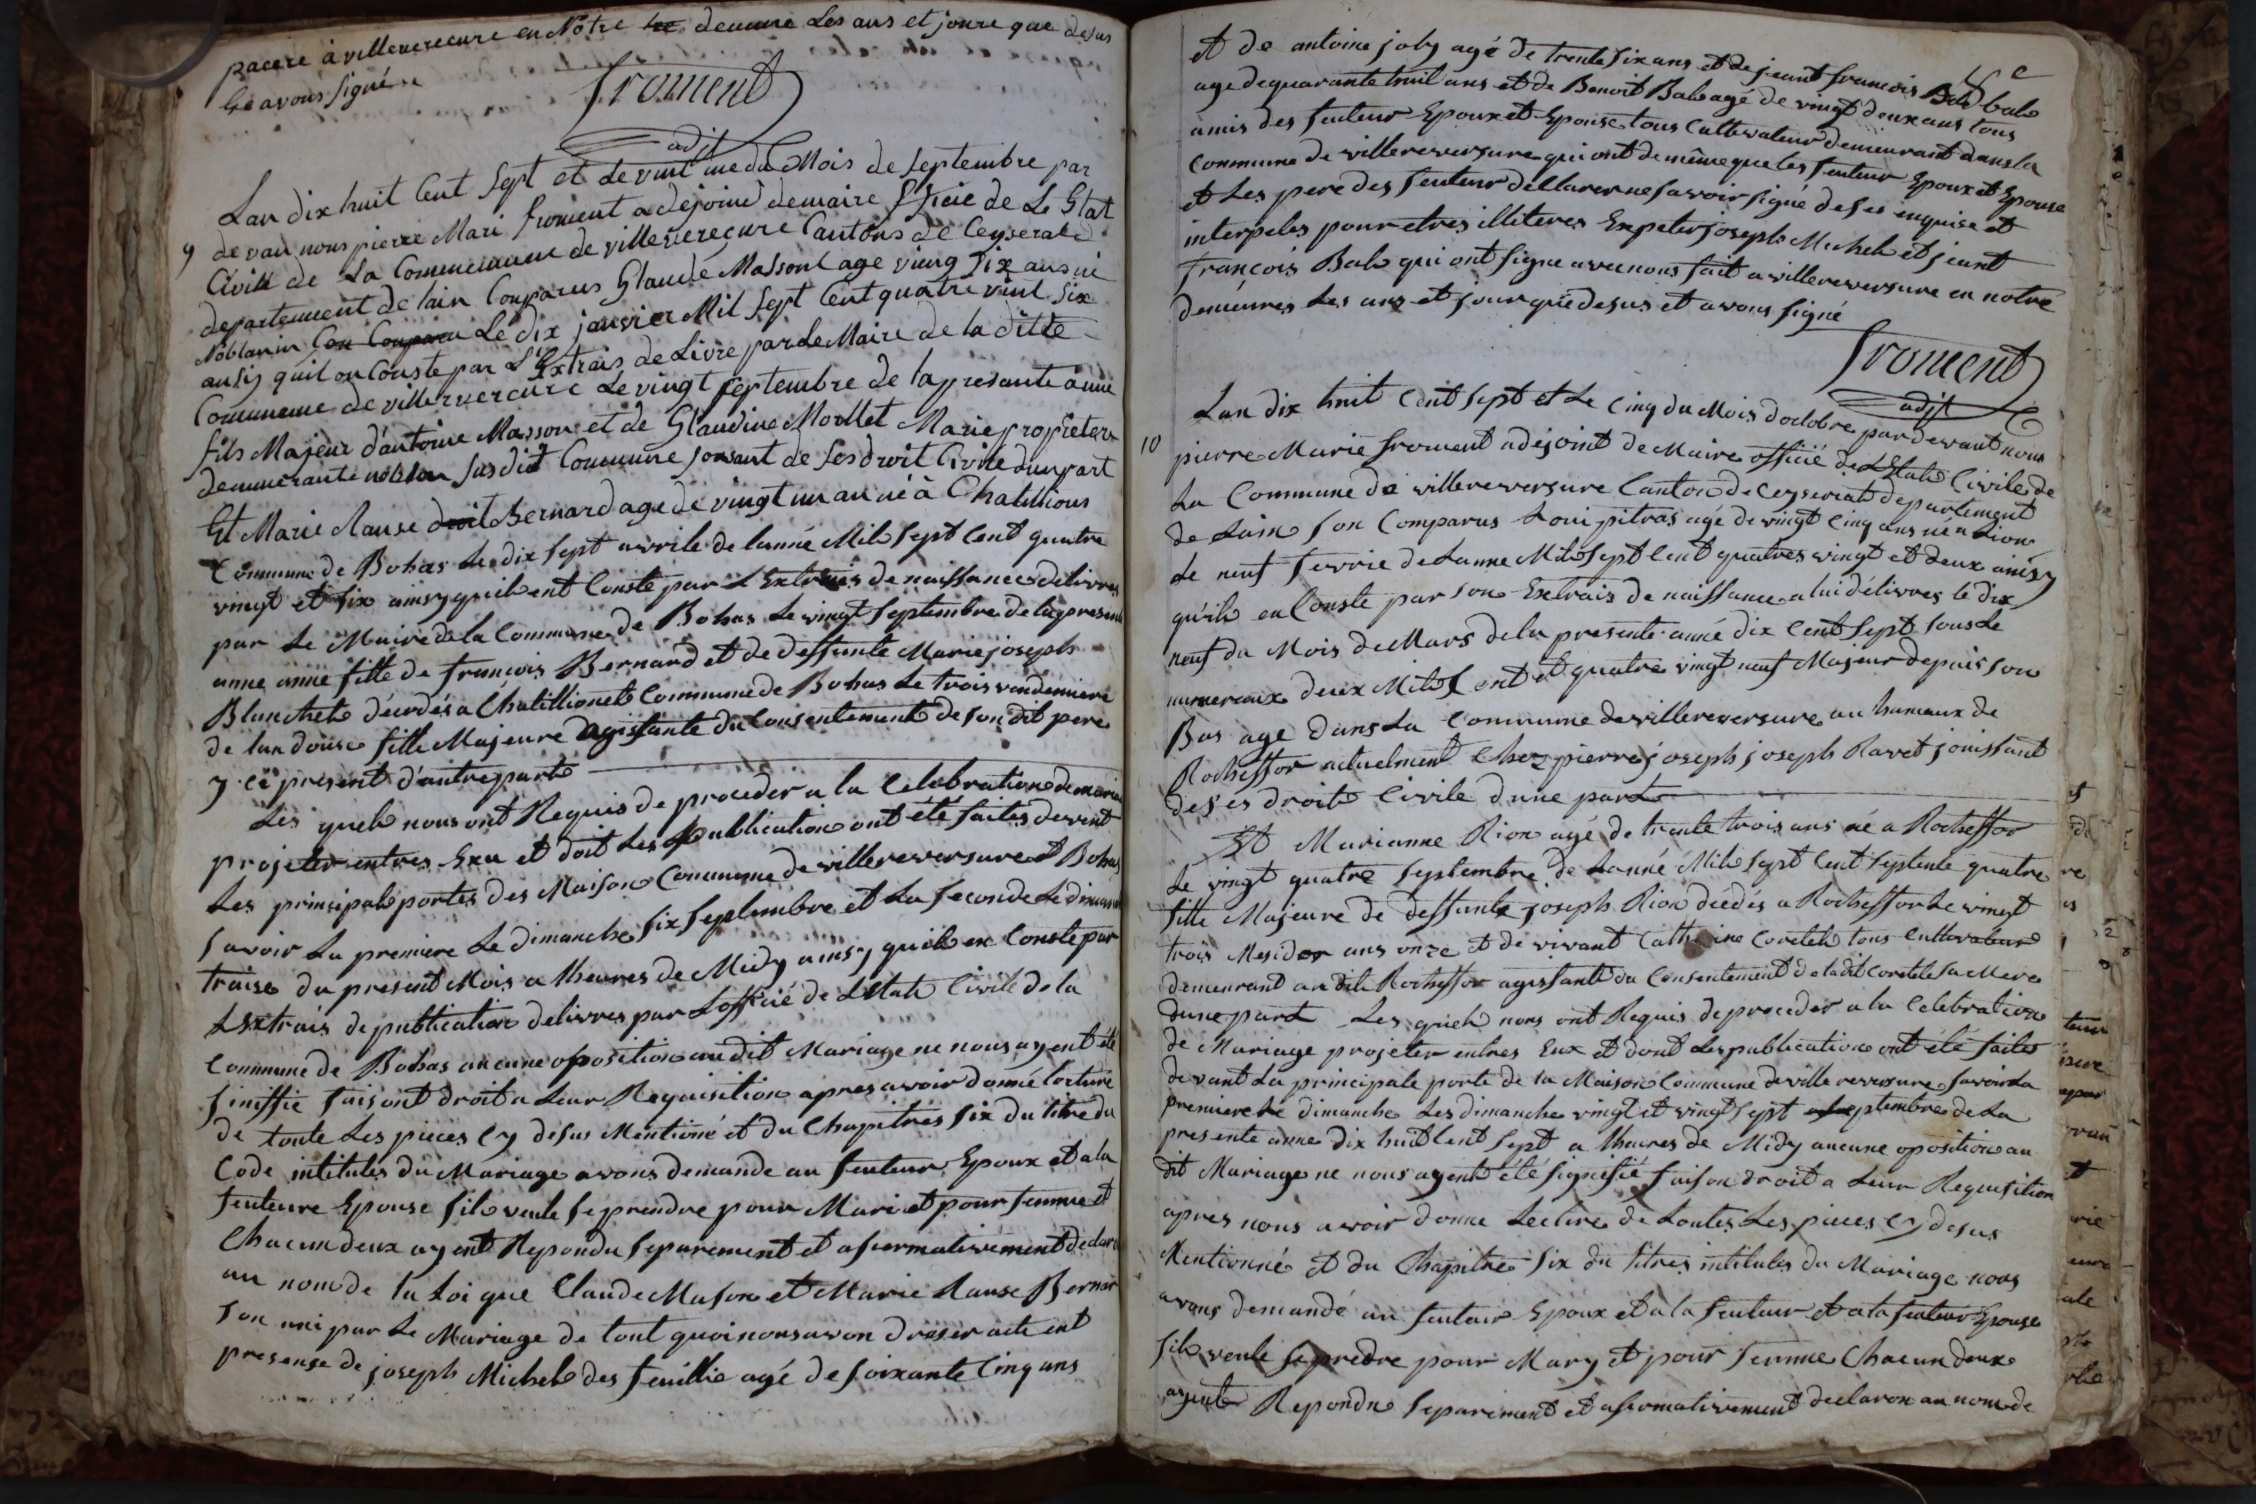 pacere à villevereçure en Notre demeure Les ans et joure que desus
Et avons signé
froment
adjt
9
Lan dix huit Cent Sept et Le vint une du Mois de Septembre par
de van nous pierre Mari froment adejoint demaire officie de Le Etat
Civill de La Commeunaune de villevereçure Cantons de Ceyserat
departement de lain Comparus Glaude Massont age vieng six ans né
Noblanin Le dix janvier Mil Sept Cent quatre vint Six
ausiy quil on Conste par L'Extrais de Livre par de Maire de la ditte
Comuneme de villervercure Le vingt Septembre de la presante année
fils Majeur d'antoine Masson et de Glaudine Morllet Marie proprieter
demeurante susdict Commune jousant de ses droit Civile dunpart
Et Marie Rause Bernard age de vingt un an né à Chatillions
Commune de Bohas Le dix sept avrile de lanné Mil Sept Cent quatre
vingt et six ainsy quil ent Conste par L'Extrais de naissances delivres
par Le Maire de la Commune de Bohas Le vingt septembre de la present
anne anne fille de francois Bernard et de deffunte Marie joseph
Blanchet décédés a Chatillionet Commune de Bohas Le trois vendemiere
de lan douse fille Majeure Agissante du Consentement de son dit pere
y ce present d'autre part
Les quels nous ont Requis de proceder a la Celebration de maria
projeter entres Exu et doit Les publication ont été faites devent
Les principale portes des Maison Commune de villereversure et Bohas
Savoir La premiere Le dimanche six septembre et La seconde Le diman
traise du present Mois a lheures de Midy ainsy quil en Conste par
L'Extrais de publication delivres par L'officié de L'Etat Civile de la
Commune de Bohas aucune oposition au dit Mariage ne nous ayent été
siniffie faisont droit a Leur Requisition apres avoir donné lecture
de toute Les pieces Cy desus Mentioné et du Chapitres six du titre du
Code intitules du Mariage avons demande au feuteur Epoux et a la
feuteure Epouse sil veule se prendre pour Mari et pour femme et
Chacun deux ayent Repondu Separement et afermativement declar
au nom de la Loi que Claude Mason et Marie Rause Bernar
son uni par Le Mariage de tout quoi nous avon dreser acte ent
presense de joseph Michel des feuillie agé de soixante Cinq ans
et de antoine joly agé de trente six ans et de jeant francois Bal
age de quarante huit ans et de Benoit Bal agé de vingt deux ans tous
amis des feuteur Epoux et Epouse tous Cultivateur demeurant dans la
Commune de villereversure qui ont de même que les feuteur Epoux et Epouse
et Les pere des feuteur dellarer ne savoir signé de ses enquise et
interpeles pour etres illiteres Expeter joseph Michel et jeant
francois Bal qui ont signe avec nous fait a villereversure en notre
demeures Les ans et jour que desus et avons signé
froment
adjt
10
Lan dix huit Cent sept et Le Cinq du Mois doctobre par devant nous
pierre Marie froment adejoint de Maire officié de L'Etat Civile de
La Commune de villereversure Canton de Ceyseriat departement
de Lain son Comparus Loui pitras agé de vingt Cinq ans né a Lion
Le neuf fevrie de Lanne Mil Sept Cent quatres vingt et deux ainsy
quil en Conste par son Extrais de naissance a lui délivres le dix
neuf du Mois de Mars de la presente anné dix Cent Sept sous Le
numeroux deux Mil Cent et quatre vingt neuf Majeur depuis son
Bas age Dans La Commune de villereversure au hameaux de
Rocheffor actuelment Chez pierre joseph joseph Ravet jouissant
de ses droit Civile dune part
Et Marianne Rion agé de trente trois ans né a Rocheffor
Le vingt quatre Septembre de Lanné Mil Sept Cent Septente quatre
fille Majeure de deffunte joseph Rion décdés a Rocheffor Le vingt
trois Mesidor ans onze et de vivant Catherine Coretel tous Cultivateur
demeurant au dit Rocheffor agissante du Consentement de ladit Coretele sa Mere
dune part Les quels nous ont Requis de proceder a la Celebration
de Mariage projeter entres Eux et dont Les publication ont été faites
devant La principale porte de la Maison Commune de villereversure savoir La
premiere Le dimanche Les dimanche vingt et vingt sept septembre de La
presente anne dix huit Cent Sept a lheures de Midy aucune oposition au
dit Mariage ne nous ayent été signifié faison droit a Leur Requisition
apres nous avoir donne Lecture de toutes Les pieces Cy desus
Mentionné et du Chapitre six du titres intitules du Mariage nous
avons demandé au feuteur Epoux et a la feuteur et a la feuteur Epouse
sil veule se predre pour Mary et pour femme Chacun deux
ayent Repondu Separiment et afermativement declaron au nom de